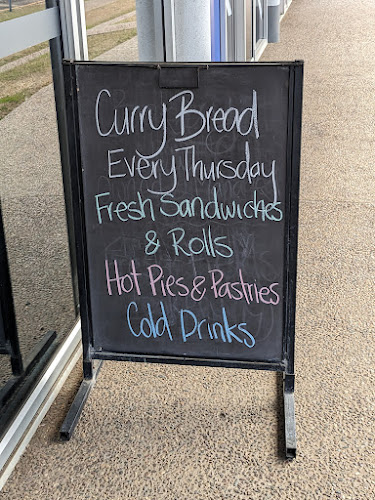 Curry Bread
Every Thursday
Fresh Sandwiches
& Rolls
Hot Pies & Pastries
Cold Drinks